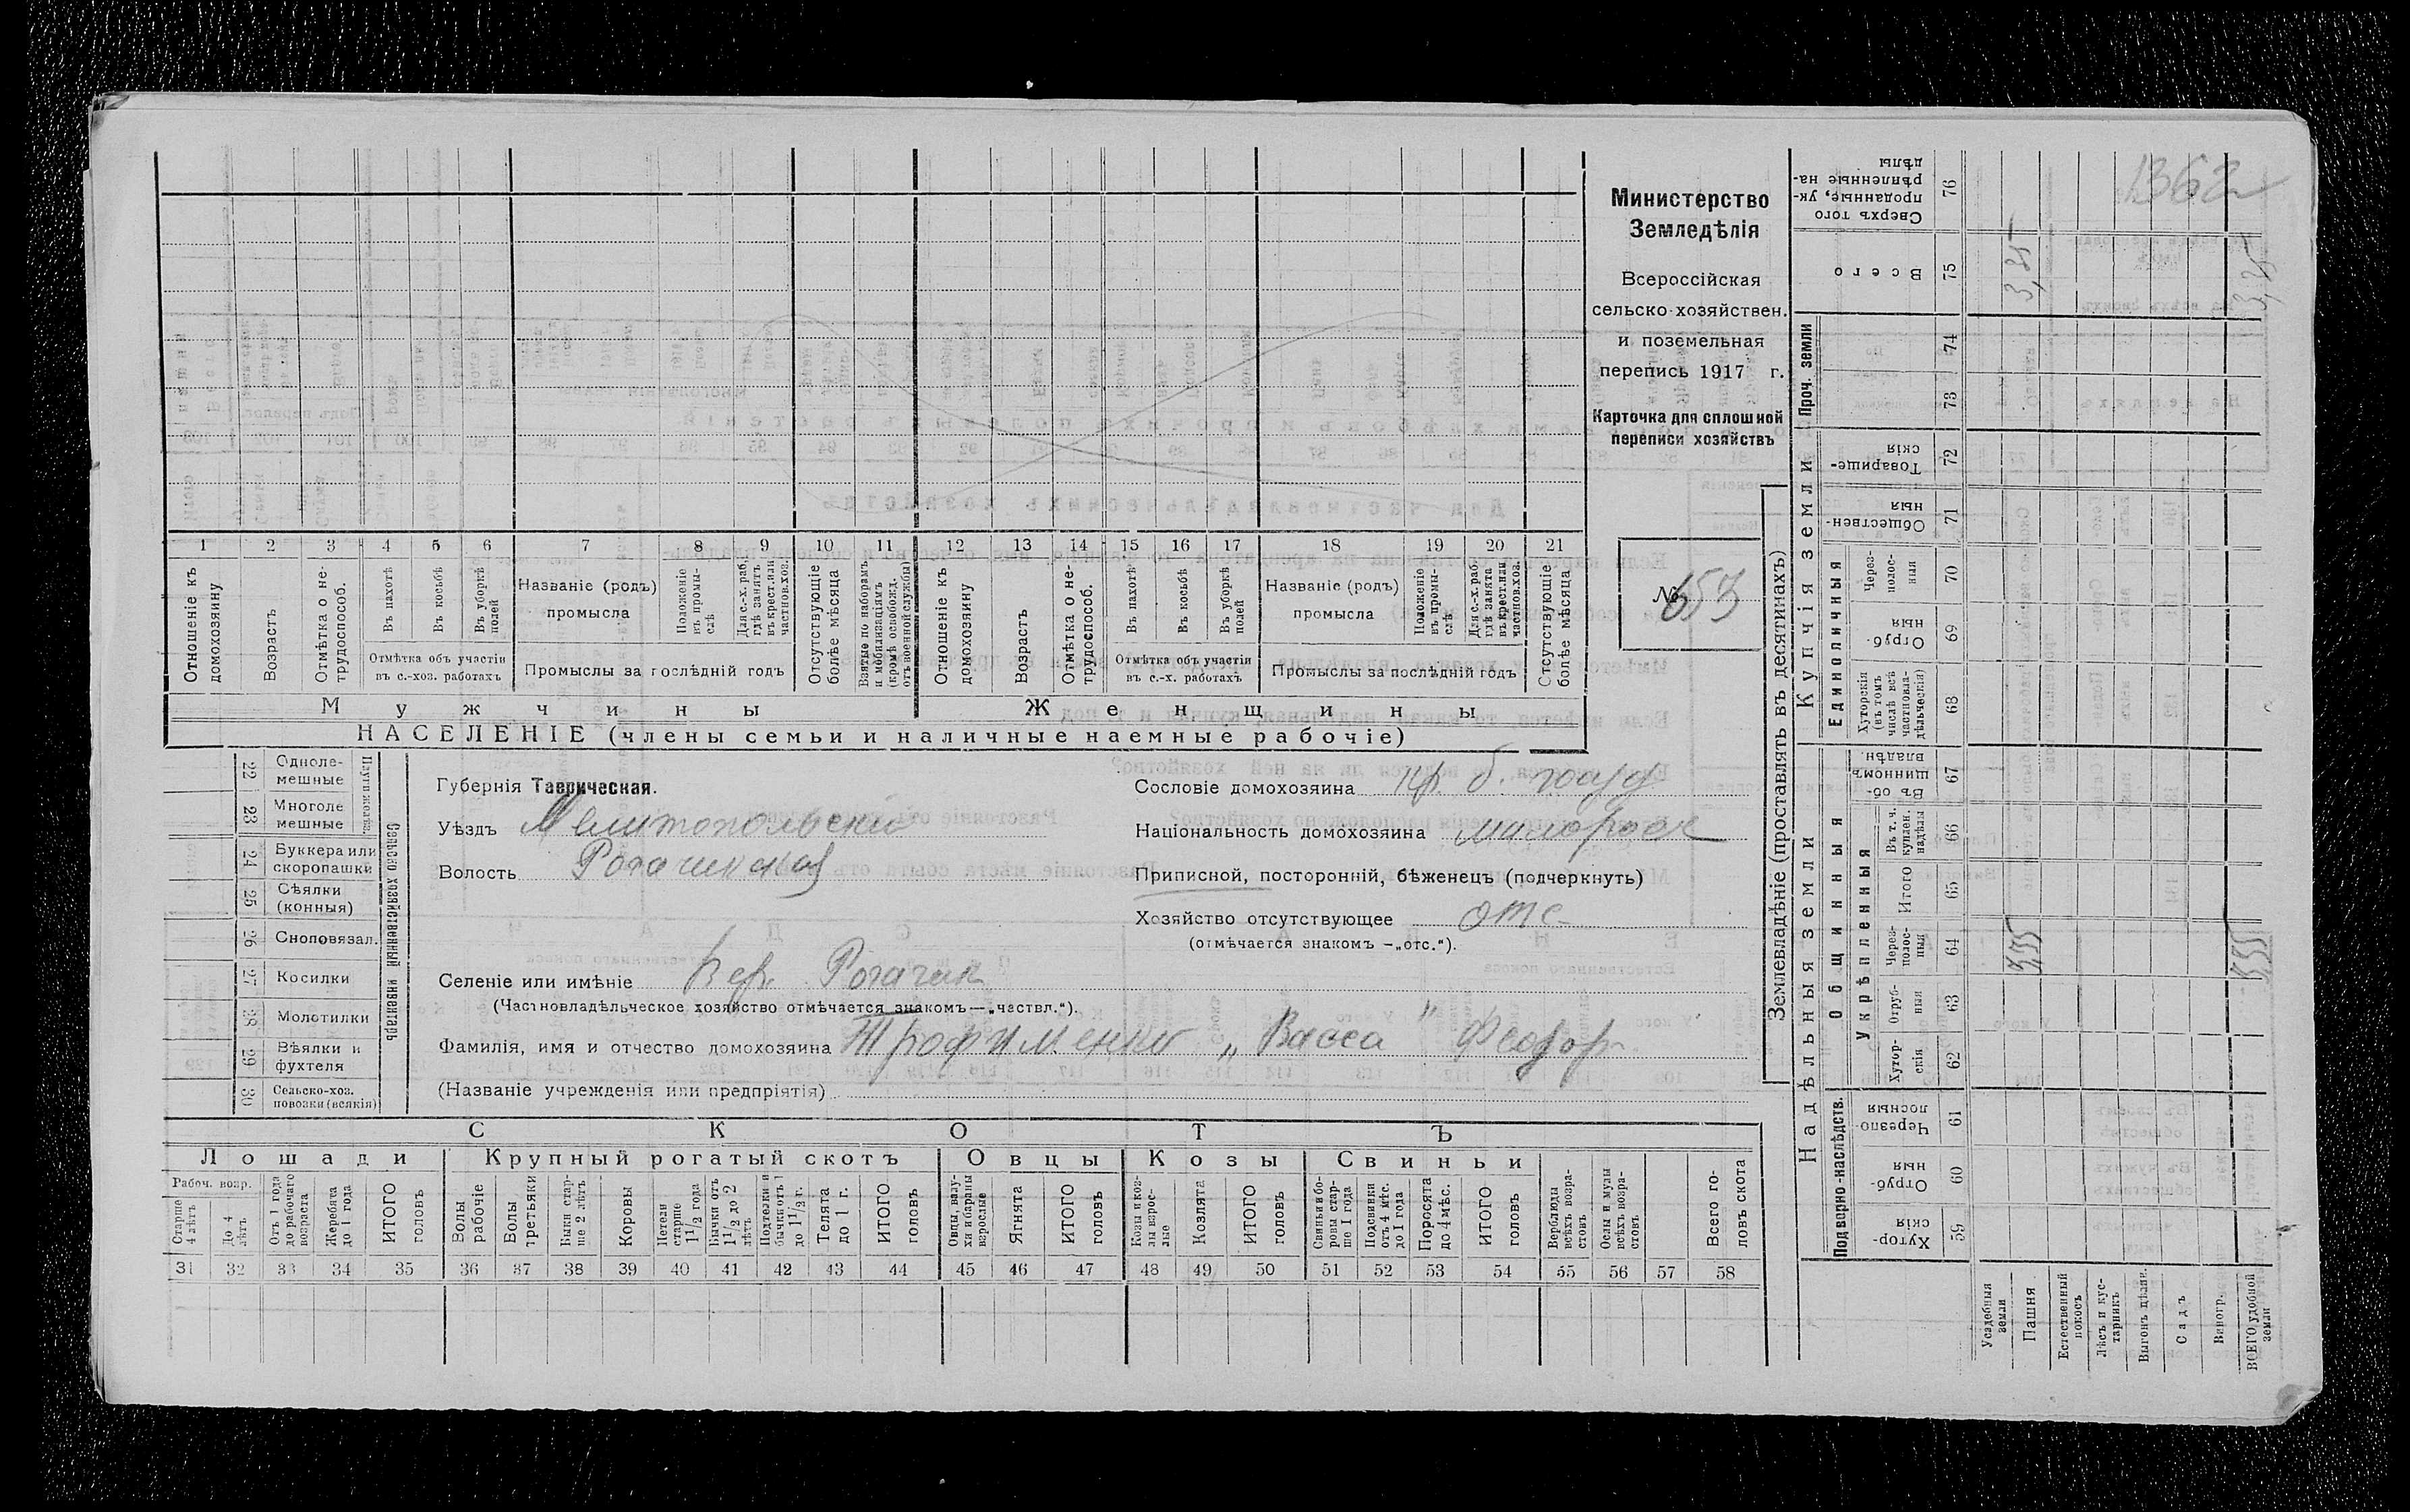 Министерство
Земледѣлія
Всероссійская
сельско-хозяйствен.
и поземельная
перепись 1917 г.
Карточка для сплошной
переписи хозяйствъ
№ 653
1362
1 2 3 4 5 6 7 8 9 10 11 12 13 14 15 16 17 18 19 20 21
Отношеніе къ домохозяину
Возрастъ
Отмѣтка о не-трудоспособ.
Въ пахотѣ
Въ косьбѣ
Въ уборкѣ полей
Отмѣтка объ участіи въ с.-хоз. работахъ
Названіе (родъ) промысла
Положеніе въ промы-слѣ
Для с.-х. раб. гдѣ занятъ въ крест. или частнов. хоз.
Промыслы за послѣдній годъ
Отсутствующіе болѣе мѣсяца
Взятые по наборамъ и мобилизаціямъ (кромѣ освобожд. отъ военной службы)
Отношеніе къ домохозяину
Возрастъ
Отмѣтка о не-трудоспособ.
Въ пахотѣ
Въ косьбѣ
Въ уборкѣ полей
Отмѣтка объ участіи въ с.-х. работахъ
Названіе (родъ) промысла
Положеніе въ промы-слѣ
Для с.-х. раб. гдѣ занята въ крест. или частнов. хоз.
Промыслы за послѣдній годъ
Отсутствующіе болѣе мѣсяца
Мужчины Женщины
НАСЕЛЕНІЕ (члены семьи и наличные наемные рабочіе)
Сельско хозяйственный инвентарь
22 Одноле-мешные
23 Многоле мешные
24 Буккера или скоропашки
25 Сѣялки (конныя)
26 Сноповязал.
27 Косилки
28 Молотилки
29 Вѣялки и фухтеля
30 Сельско-хоз. повозки (всякія)
Губернія Таврическая.
Уѣздъ Мелитопольский
Волость Рогачикская
Селеніе или имѣніе Вер. Рогачик
(Частновладѣльческое хозяйство отмѣчается знакомъ—„частвл.“).
Фамилія, имя и отчество домохозяина Трофименко „Васса" Федор.
(Названіе учрежденія или предпріятія)
Сословіе домохозяина кр. б.
Національность домохозяина малоросс
Приписной, посторонній, бѣженецъ (подчеркнуть)
Хозяйство отсутствующее отс
(отмѣчается знакомъ —„отс.“).
СКОТЪ
Лошади Крупный рогатый скотъ Овцы Козы Свиньи
Рабоч. возр.
Старше 4 лѣтъ
До 4 лѣтъ
Отъ 1 года до рабочаго возраста
Жеребята до 1 года
ИТОГО головъ
Волы рабочіе
Волы третьяки
Быки стар-ше 2 лѣтъ
Коровы
Нетели старше 1 1/2 года
Бычки отъ 1 1/2 до 2 лѣтъ
Подтелки и бычки отъ 1 до 1 1/2 г.
Телята до 1 г.
ИТОГО головъ
Овцы, валу-хи и бараны взрослые
Ягнята
ИТОГО головъ
Козы и коз-лы взрос-лые
Козлята
ИТОГО головъ
Свиньи и бо-ровы стар-ше 1 года
Подсвинки отъ 4 мѣс. до 1 года
Поросята до 4 мѣс.
ИТОГО головъ
Верблюды всѣхъ возра-стовъ
Ослы и мулы всѣхъ возра-стовъ
Всего го-ловъ скота
31 32 33 34 35 36 37 38 39 40 41 42 43 44 45 46 47 48 49 50 51 52 53 54 55 56 57 58
Землевладѣніе (проставлять въ десятинахъ)
Надѣльныя земли Купчія земли Проч. земли
Подворно-наслѣдств.
Общинныя
Укрѣпленныя
Единоличныя
Хутор-скія 59
Отруб-ныя 60
Черезпо-лосныя 61
Хутор-скія 62
Отруб-ныя 63
Через-полос-ныя 64
Итого 65
Въ т. ч. куплен. надѣлы 66
Въ об-щинномъ владѣн. 67
Хуторскія (въ томъ числѣ всѣ частновла-дѣльческія) 68
Отруб-ныя 69
Через-полос-ныя 70
Обществен-ныя 71
Товарище-скія 72
73
74
Всего 75
Сверхъ того проданные, ук-рѣпленные на-дѣлы 76
Усадебныя земли
Пашня
Естественный покосъ
Лѣсъ и кус-тарникъ
Выгонъ цѣлин.
Садъ
Виногр.
ВСЕГО удобной земли